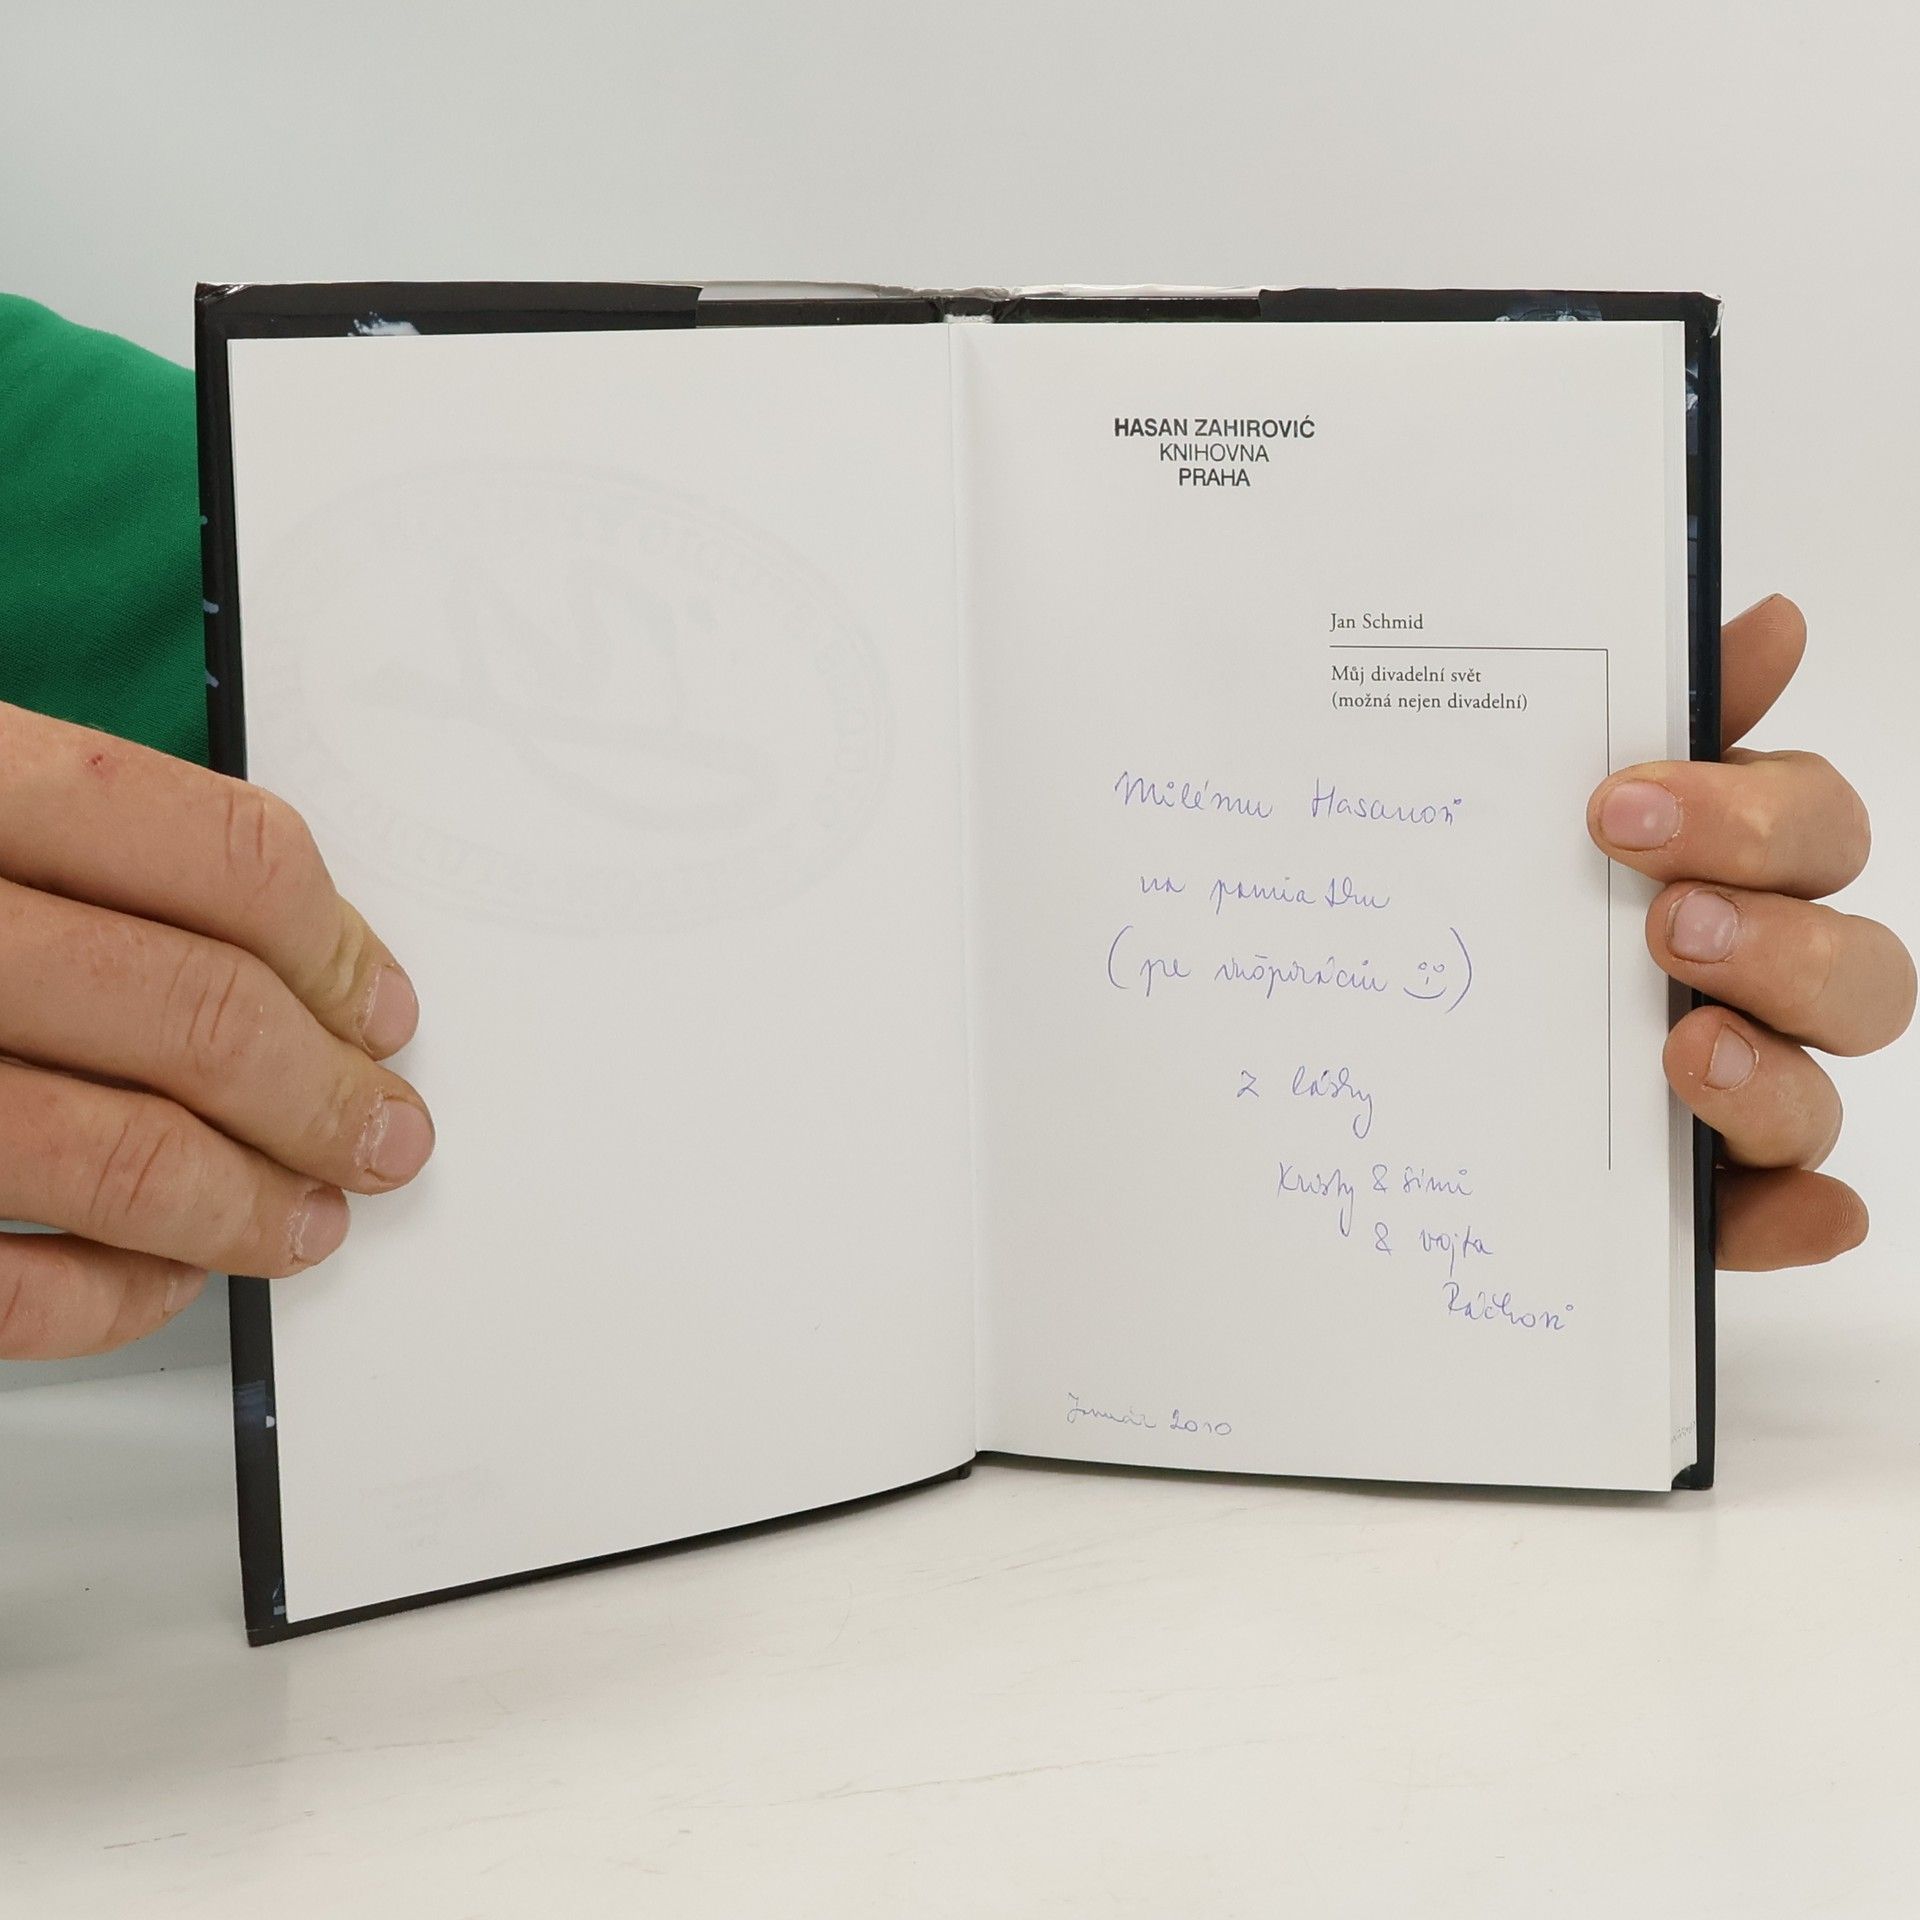 HASAN ZAHIROVIĆ
KNIHOVNA
PRAHA
Jan Schmid
Můj divadelní svět
(možná nejen divadelní)
Milému Hasanovi
na pamiatku
(pre inšpiráciu
z lásky
Kristy & Simi
& Vojta
Január 2010